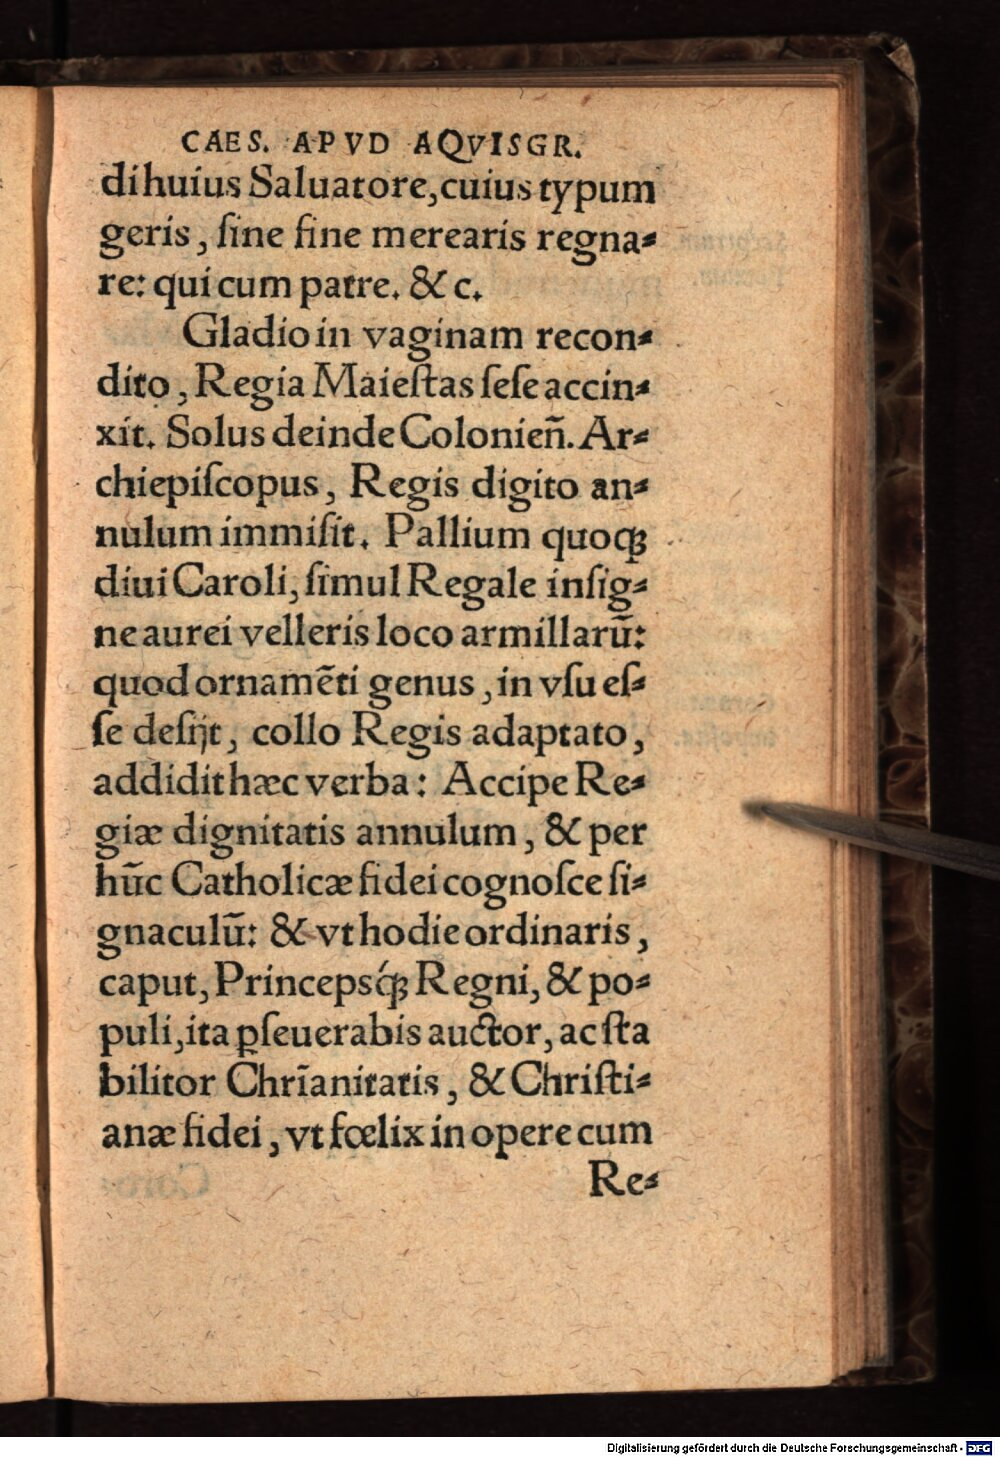 CAES. APVD AQVISGR.
di huius Saluatore, cuius typum
geris, ſine fine merearis regna⸗
re: qui cum patre. & c.
Gladio in vaginam recon⸗
dito, Regia Maieſtas ſeſe accin⸗
xit. Solus deinde Colonieñ. Ar⸗
chiepiſcopus, Regis digito an⸗
nulum immiſit. Pallium quoqꝫ
diui Caroli, ſimul Regale inſig⸗
ne aurei velleris loco armillarũ:
quod ornamẽti genus, in vſu eſ⸗
ſe deſijt, collo Regis adaptato,
addidit hæc verba: Accipe Re⸗
giæ dignitatis annulum, & per
hũc Catholicæ fidei cognoſce ſi⸗
gnaculũ: & vt hodie ordinaris,
caput, Princepsq́ꝫ Regni, & po⸗
puli, ita ꝑſeuerabis auctor, ac ſta
bilitor Chr̃ianitatis, & Chriſti⸗
anæ fidei, vt fœlix in opere cum
Re⸗
Digitalisierung gefördert durch die Deutsche Forschungsgemeinschaft - DFG